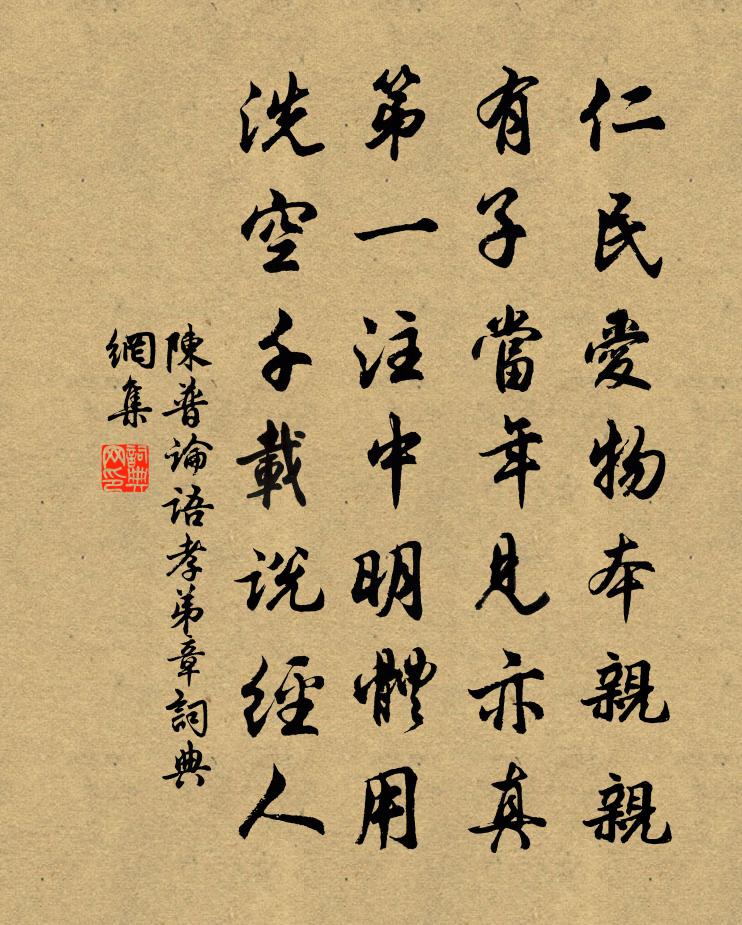 仁民愛物本親親
有子當年見亦真
第一注中明體用
洗空千載説經人
陳普論語孝弟章詞典
網集
詞典
网印